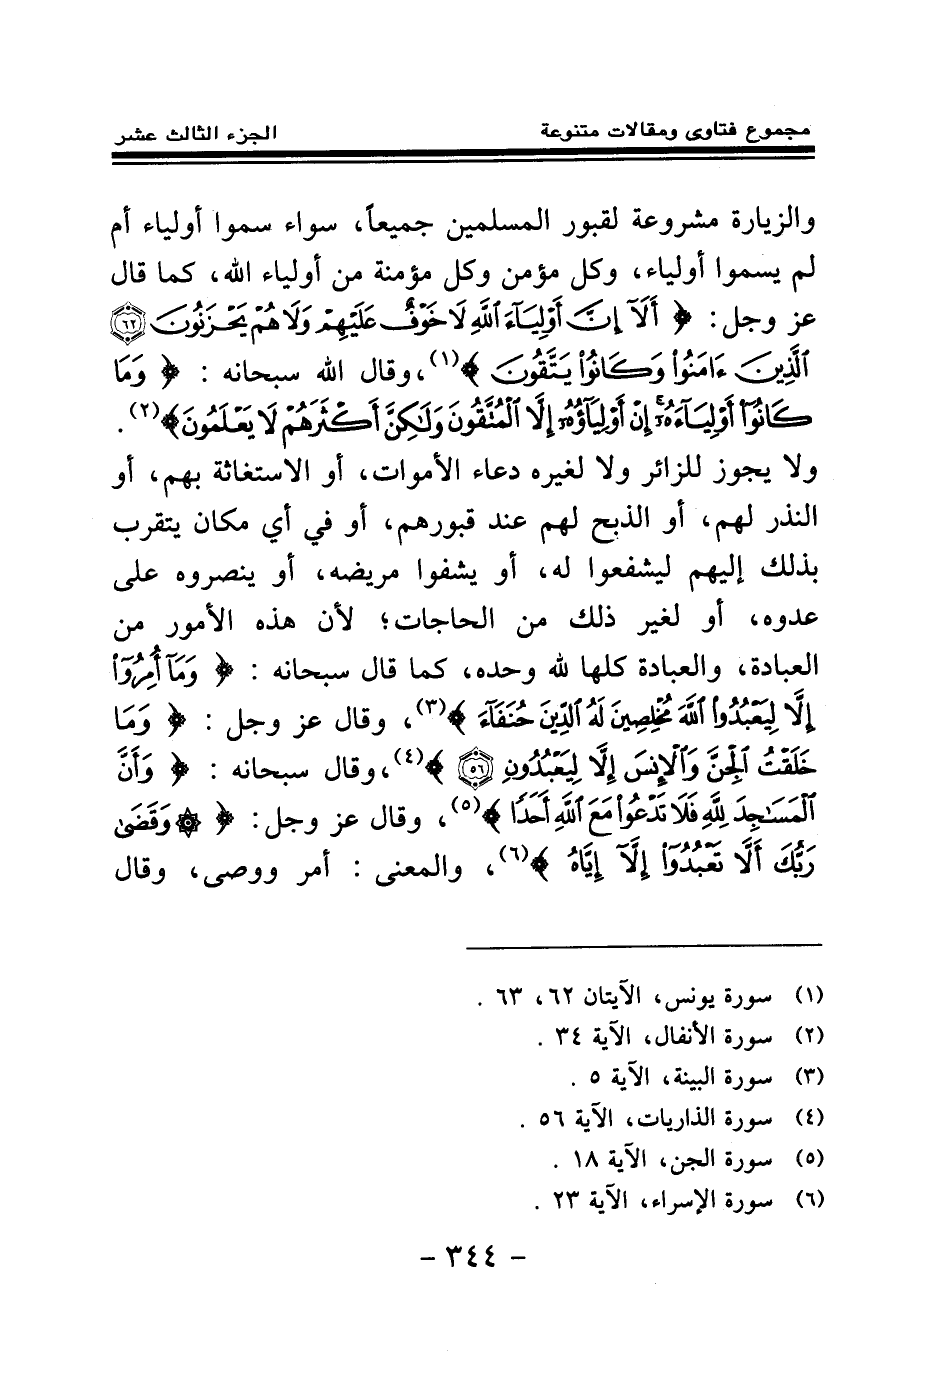 مجموع فتاوى ومقالات متنوعة الجزء الثالث عشر
والزيارة مشروعة لقبور المسلمين جميعاً، سواء سموا أولياء أم
لم يسموا أولياء، وكل مؤمن وكل مؤمنة من أولياء الله، كما قال
عز وجل: ﴿ أَلَآ إِنَّ أَوْلِيَآءَ ٱللَّهِ لَا خَوْفٌ عَلَيْهِمْ وَلَا هُمْ يَحْزَنُونَ ٦٢
ٱلَّذِينَ ءَامَنُوا۟ وَكَانُوا۟ يَتَّقُونَ ﴾(١)، وقال الله سبحانه : ﴿ وَمَا
كَانُوٓا۟ أَوْلِيَآءَهُۥٓ إِنْ أَوْلِيَآؤُهُۥٓ إِلَّا ٱلْمُتَّقُونَ وَلَٰكِنَّ أَكْثَرَهُمْ لَا يَعْلَمُونَ﴾(٢) .
ولا يجوز للزائر ولا لغيره دعاء الأموات، أو الاستغاثة بهم، أو
النذر لهم، أو الذبح لهم عند قبورهم، أو في أي مكان يتقرب
بذلك إليهم ليشفعوا له، أو يشفوا مريضه، أو ينصروه على
عدوه، أو لغير ذلك من الحاجات؛ لأن هذه الأمور من
العبادة، والعبادة كلها لله وحده، كما قال سبحانه : ﴿ وَمَآ أُمِرُوٓا۟
إِلَّا لِيَعْبُدُوا۟ ٱللَّهَ مُخْلِصِينَ لَهُ ٱلدِّينَ حُنَفَآءَ ﴾(٣)، وقال عز وجل : ﴿ وَمَا
خَلَقْتُ ٱلْجِنَّ وَٱلْإِنسَ إِلَّا لِيَعْبُدُونِ ٥٦ ﴾(٤)، وقال سبحانه : ﴿ وَأَنَّ
ٱلْمَسَٰجِدَ لِلَّهِ فَلَا تَدْعُوا۟ مَعَ ٱللَّهِ أَحَدًا ﴾(٥)، وقال عز وجل: ﴿ ۞ وَقَضَىٰ
رَبُّكَ أَلَّا تَعْبُدُوٓا۟ إِلَّآ إِيَّاهُ ﴾(٦)، والمعنى : أمر ووصى، وقال
(١) سورة يونس، الآيتان ٦٢، ٦٣ .
(٢) سورة الأنفال، الآية ٣٤ .
(٣) سورة البينة، الآية ٥ .
(٤) سورة الذاريات، الآية ٥٦ .
(٥) سورة الجن، الآية ١٨ .
(٦) سورة الإسراء، الآية ٢٣ .
- ٣٤٤ -